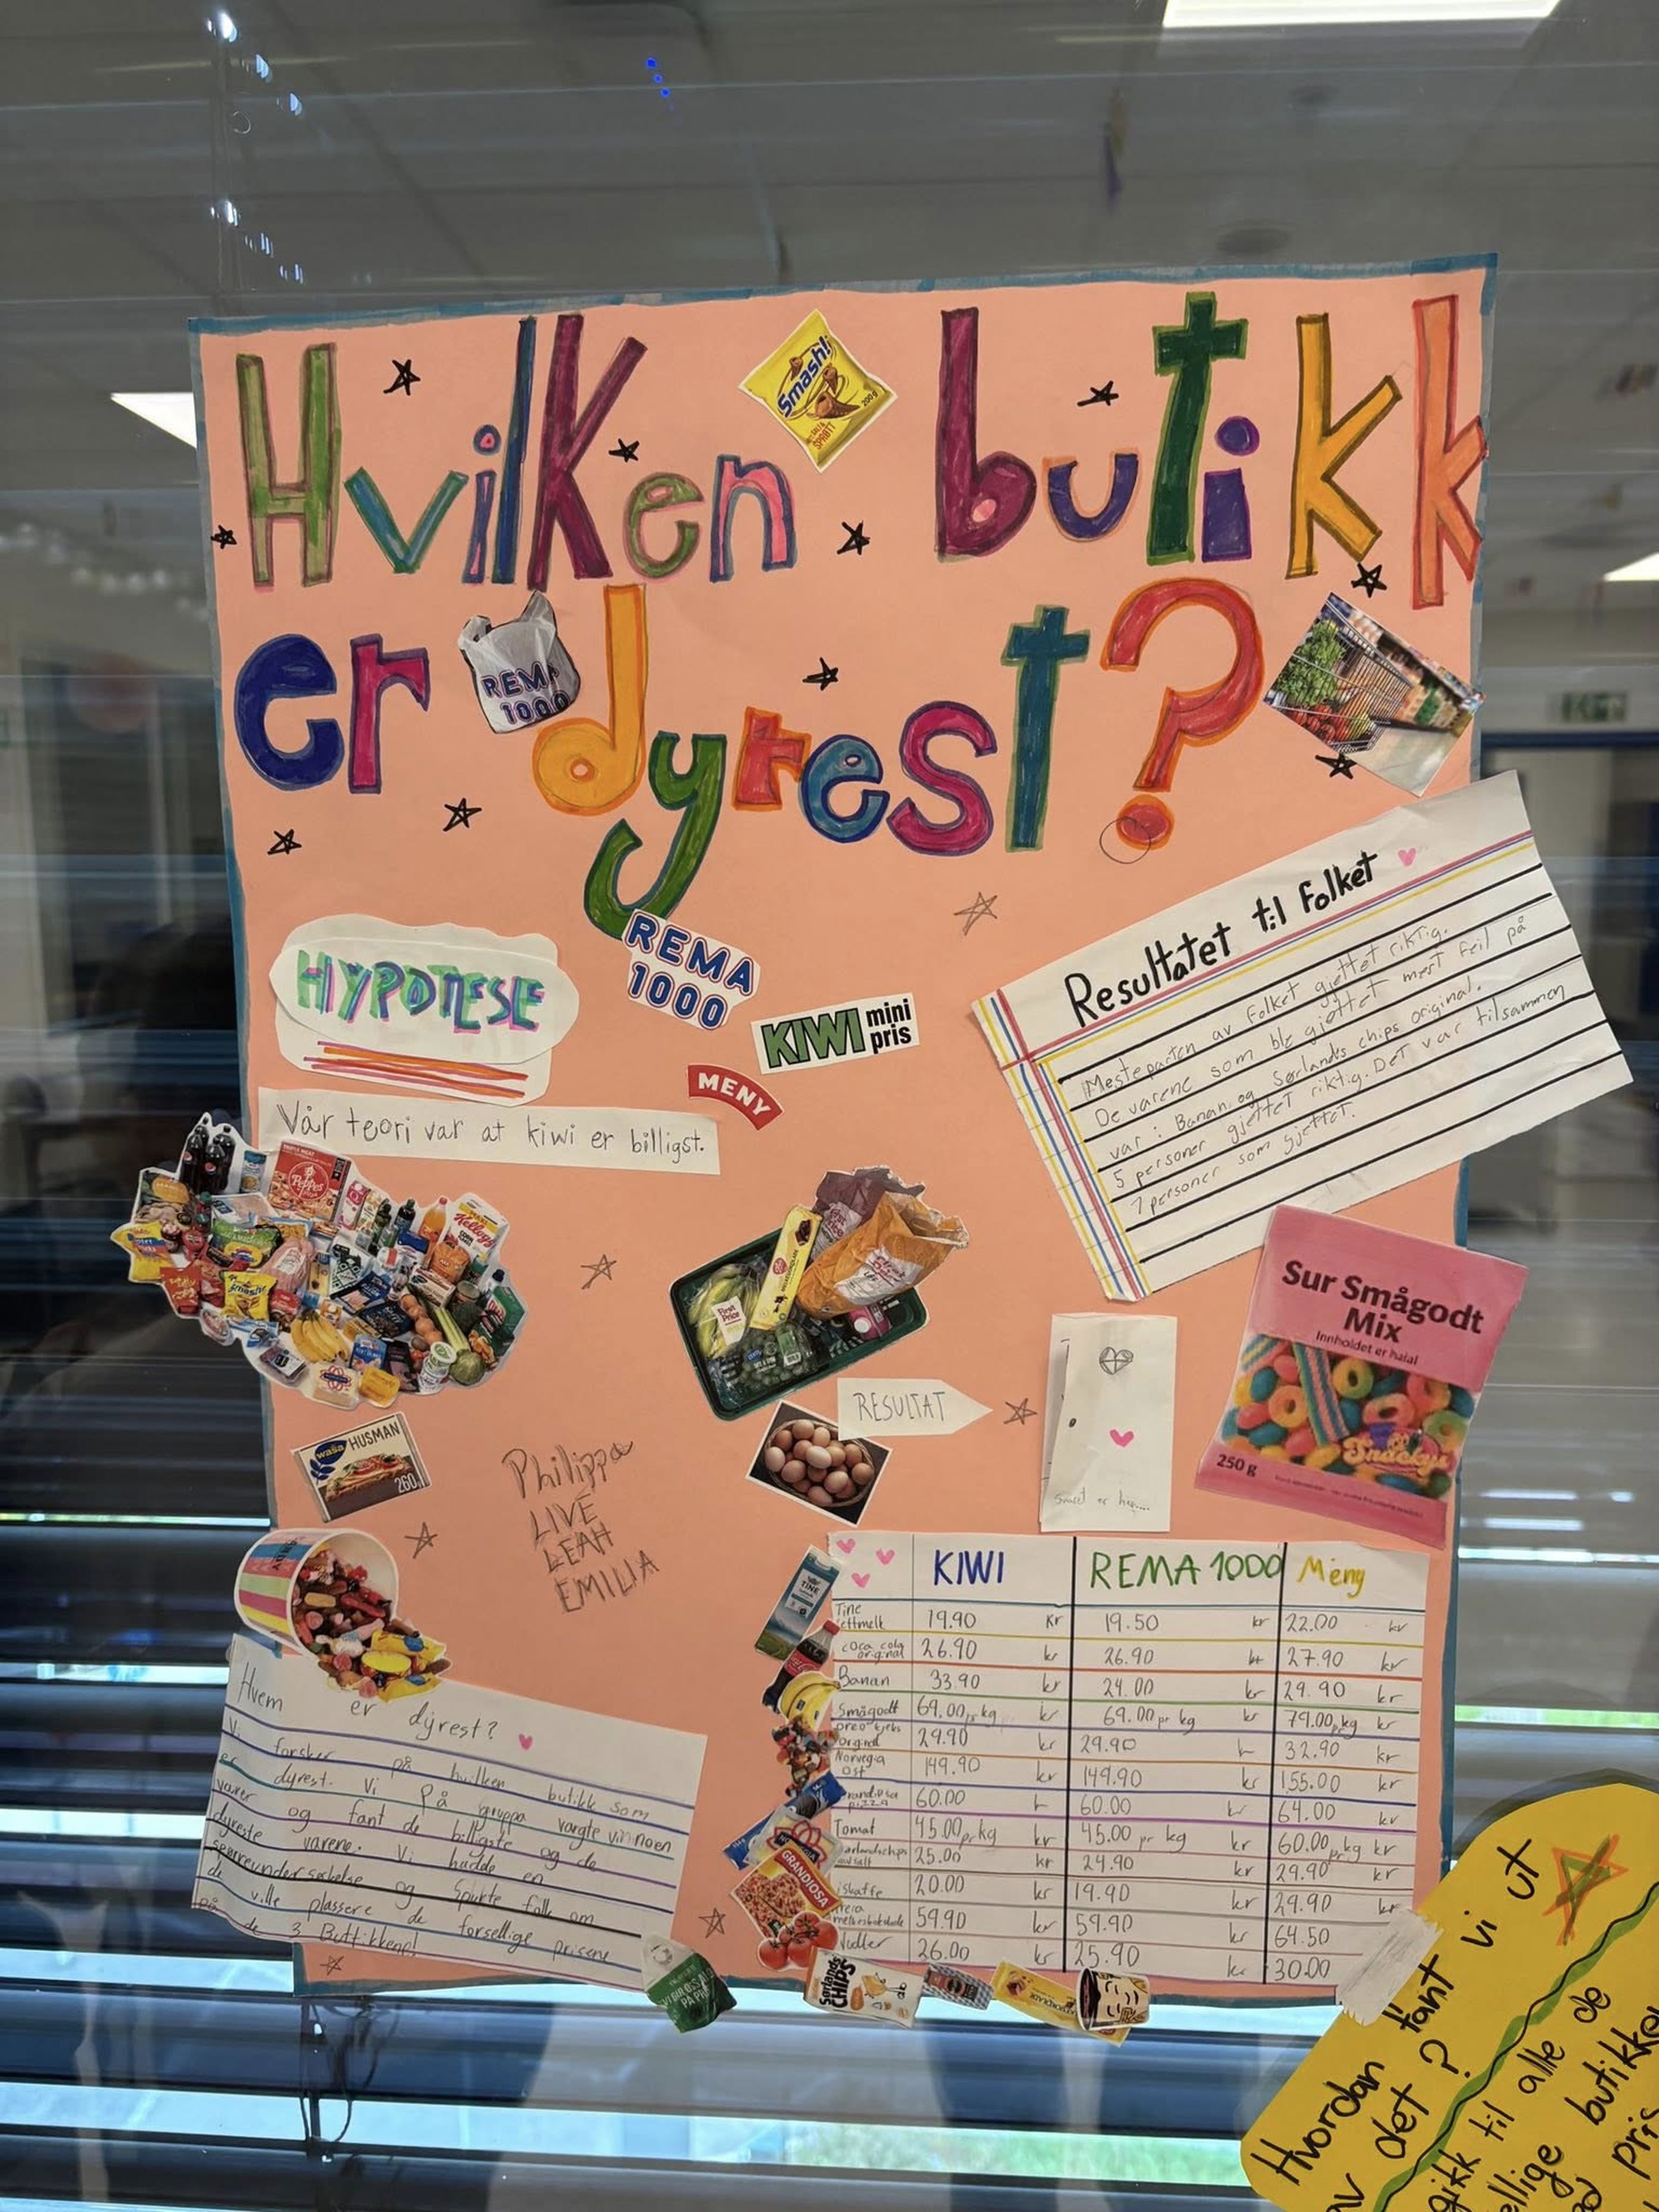 Hvilken butikk
er dyrest?
Smash!
200g
SPRØTT
REMA
1000
Resultatet til folket
Mesteparten av folket gjettet riktig.
De varene som ble gjettet mest feil på
var: Banan, og Sørlands chips original.
5 personer gjettet riktig. Det var tilsammen
7 personer som gjettet.
HYPOTESE
REMA
1000
KIWI mini
pris
MENY
Vår teori var at kiwi er billigst.
Peppes
Kellogg's
Smash!
First
Price
Sur Smågodt
Mix
Innholdet er halal
Snacky's
250 g
RESULTAT
Svaret er her....
wasa HUSMAN
260
Philippa
LIVE
LEAH
EMILIA
KIWI REMA 1000 Meny
Tine lettmelk 19.90 kr 19.50 kr 22.00 kr
coca cola original 26.90 kr 26.90 kr 27.90 kr
Banan 33.90 kr 24.00 kr 29.90 kr
Smågodt 69.00 pr kg kr 69.00 pr kg kr 79.00 pr kg kr
oreo kjeks original 29.90 kr 29.90 kr 32.90 kr
Norvegia ost 149.90 kr 149.90 kr 155.00 kr
pizza 60.00 kr 60.00 kr 64.00 kr
Tomat 45.00 pr kg kr 45.00 pr kg kr 60.00 pr kg kr
25.00 kr 24.90 kr 29.90 kr
iskaffe 20.00 kr 19.90 kr 29.90 kr
59.90 kr 59.90 kr 64.50
Nudler 26.00 kr 25.90 kr 30.00
TINE
GRANDIOSA
Sørlands
CHIPS
Hvem er dyrest?
Vi forsker på hvilken butikk som
er dyrest. Vi på gruppa valgte vi noen
varer og fant de billigste og de
dyreste varene. Vi hadde en
og spurte folk om
de ville plassere de forsellige prisene
på de 3 Buttikkene!
Hvordan fant vi ut
av det?
gikk til alle de
butikke
pris